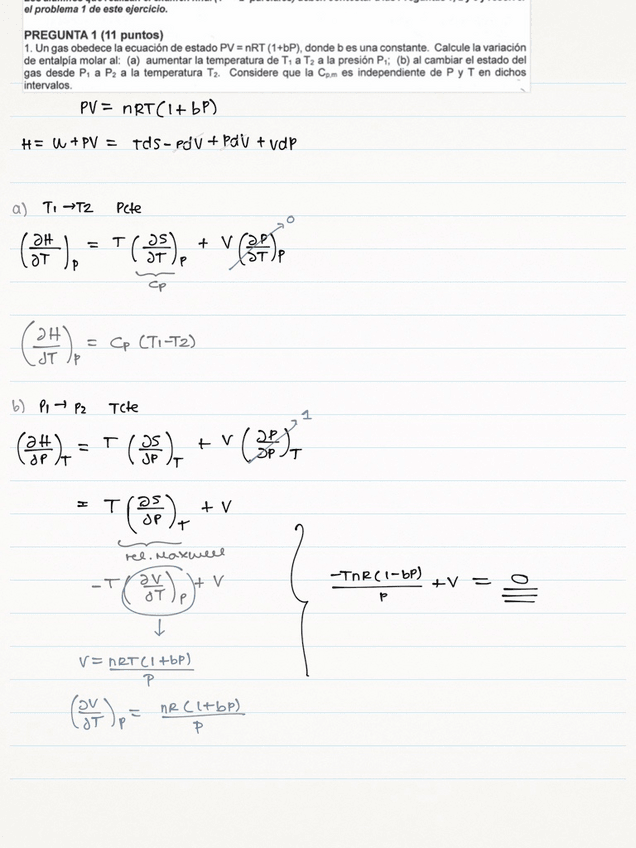 el problema 1 de este ejercicio.
PREGUNTA 1 (11 puntos)
1. Un gas obedece la ecuación de estado PV = nRT (1+bP), donde b es una constante. Calcule la variación
de entalpía molar al: (a) aumentar la temperatura de T₁ a T₂ a la presión P₁; (b) al cambiar el estado del
gas desde P₁ a P₂ a la temperatura T₂. Considere que la Cₚ,ₘ es independiente de P y T en dichos
intervalos.
PV = nRT(1+bP)
H = U + PV = TdS - PdV + PdV + VdP
a) T1 → T2 Pcte
(∂H/∂T)p = T (∂S/∂T)p + V (∂P/∂T)p 0
Cp
(∂H/∂T)p = Cp (T1-T2)
b) P1 → P2 Tcte
(∂H/∂P)T = T (∂S/∂P)T + V (∂P/∂P)T 1
= T (∂S/∂P)T + V
rel. Maxwell
-T (∂V/∂T)p + V
↓
V = nRT(1+bP)/P
(∂V/∂T)p = nR(1+bP)/P
-TnR(1-bP)/P + V = 0